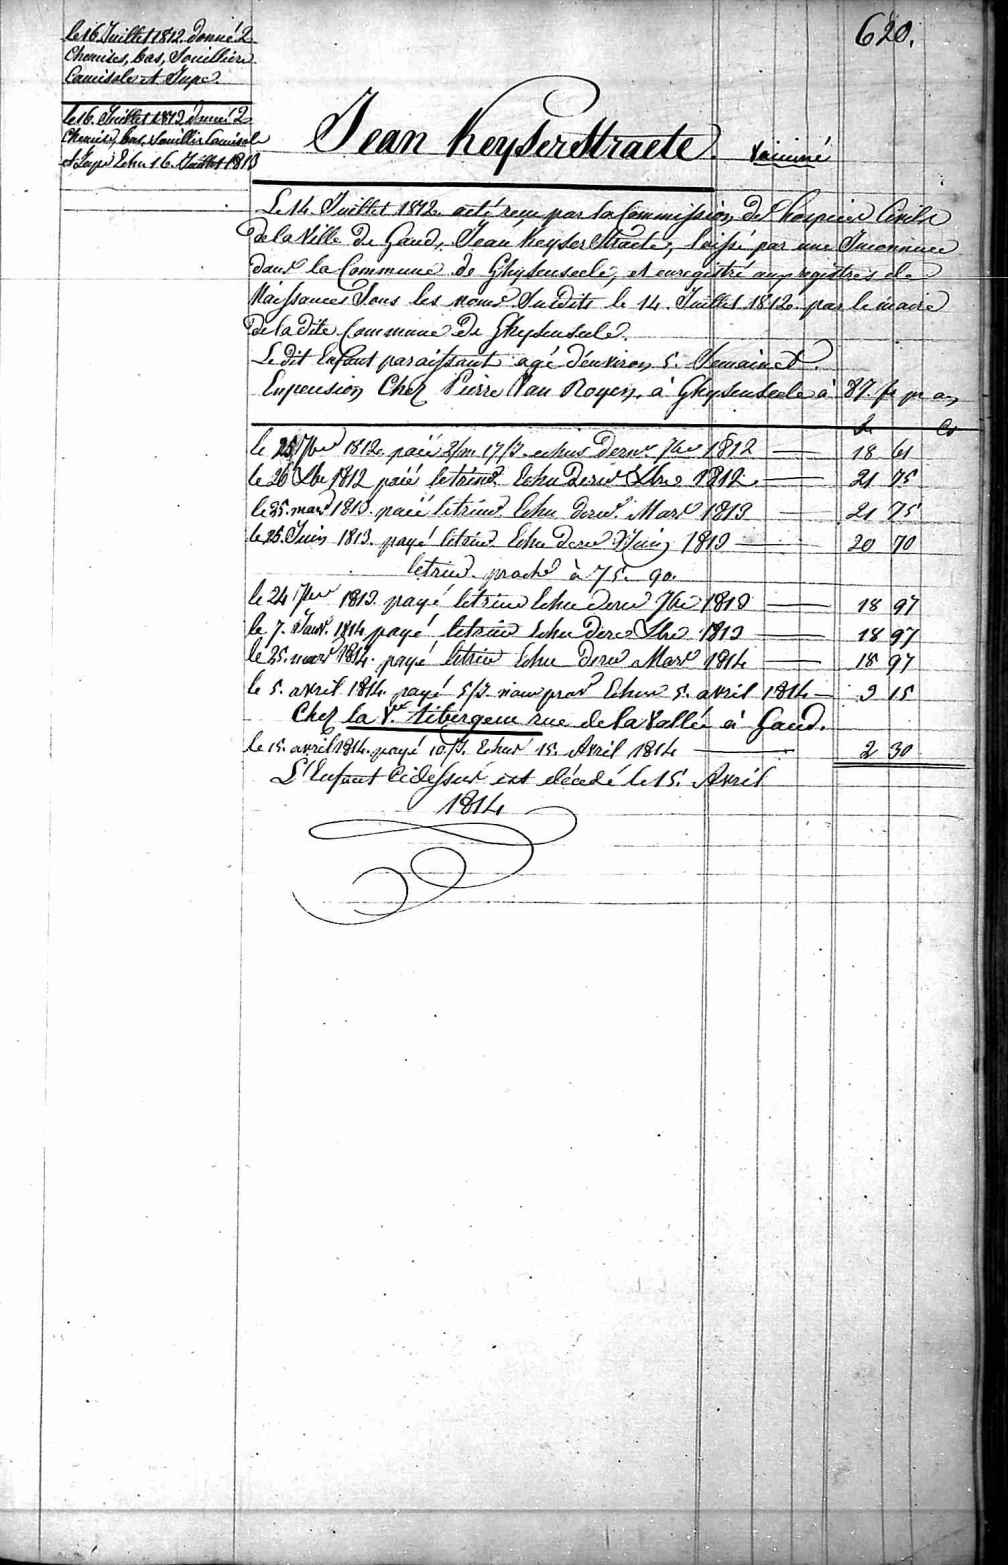 620.
le 16 Juillet 1812 donné 2
Chemises, bas, Souilliere
Camisole et Jupe.
le 16. Juillet 1812 donné 2
Chemises, bas, Camisole
et Jupe Echu 16. Juillet 1813
Jean Keyserstraete. Vacciné
Le 14 Juillet 1812. a été reçu par la Commission des hospices Civils
de la Ville de Gand, Jean Keyserstraete, laissé par une Inconnue
dans la Commune de Ghysenseele, et enregistré aux registres de
Naissances Sous les noms Susdits le 14. Juillet 1812 par le maire
de la dite Commune de Ghysenseele.
Le dit Enfant paraissant agé d'environ 5. Semaines.
En pension Chez Pierre Van Royen, à Ghysenseele à 87. fs pr an
le 25 7bre 1812 paié 2/m 17/J. echus dernr 7bre 1812 — 18 61
le 26 Xbre 1812 paié le trimr Echu dernr Xbre 1812 — 21 75
le 25. mars 1813. paié le trimr Echu dernr Mars 1813 — 21 75
le 25. Juin 1813. payé le trimr Echu dernr Juin 1813 — 20 70
le trimr proch à 75. 90.
le 24 7bre 1813. payé le trimr Echu dernr 7bre 1813 — 18 97
le 7. Janvr 1814 payé le trimr Echu dernr Xbre 1813 — 18 97
le 25. mars 1814. payé le trimr Echu dernr Mars 1814 — 18 97
le 5. avril 1814. payé 5/J. Echus 5. avril 1814 — 3 15
Chez la Ve. Libergeus rue de la Vallée à Gand.
le 15. avril 1814. payé 10/J. Echus 15. Avril 1814 — 2 30
L'Enfant Cidessus est décédé le 15. Avril
1814